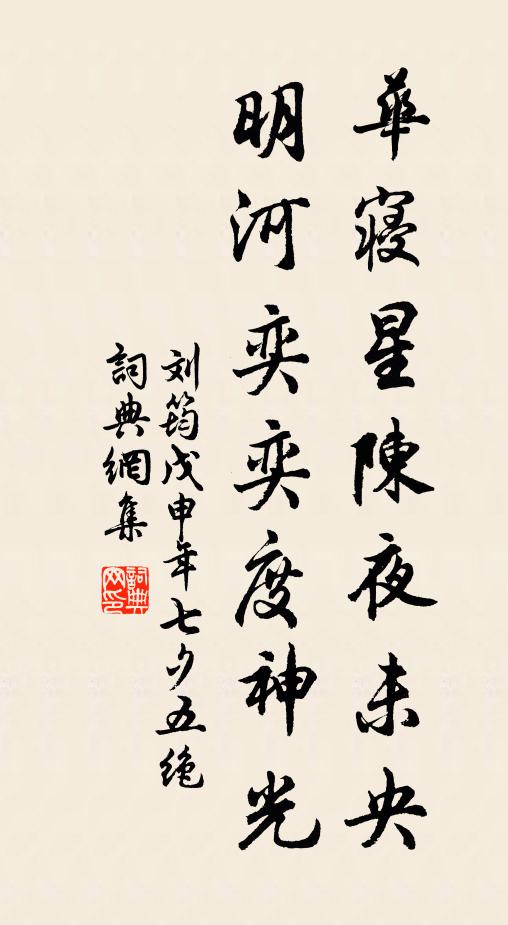 華寝星陳夜未央
明河奕奕度神光
刘筠戊申年七夕五绝
詞典網集
詞典
网印